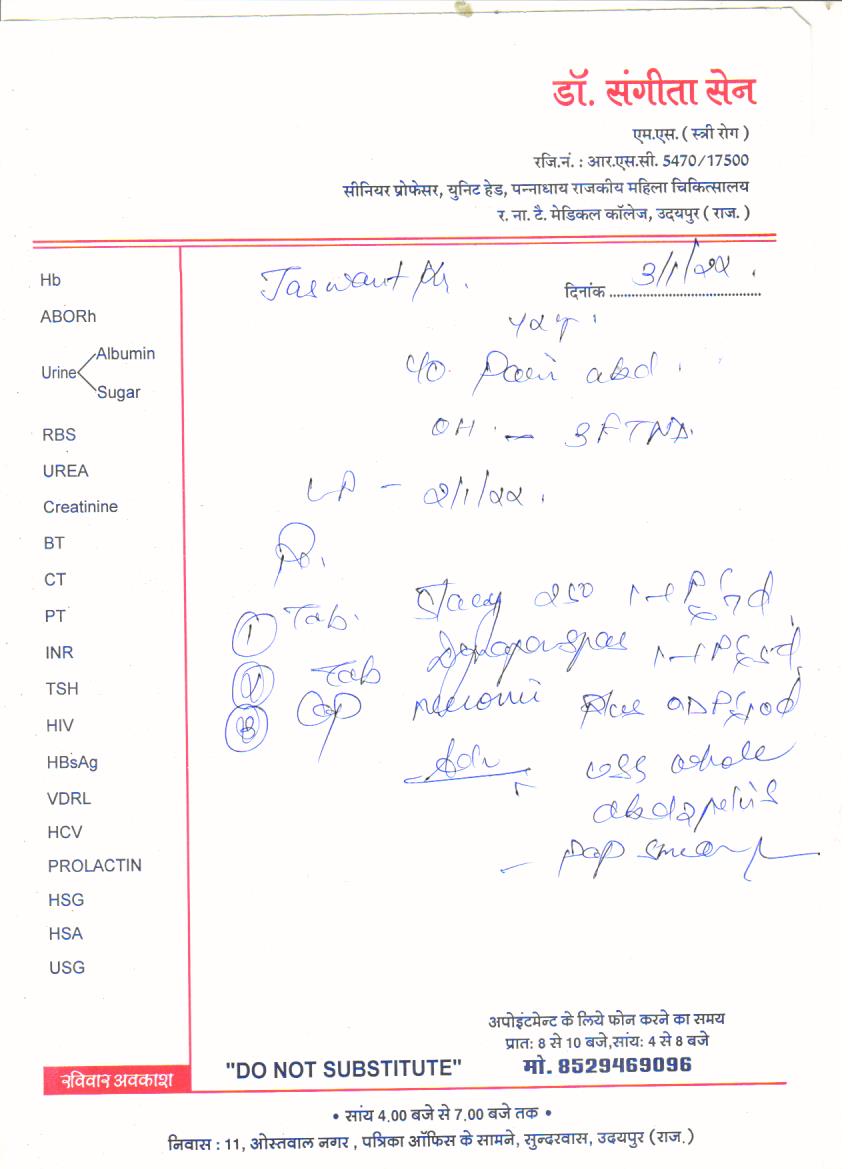 डॉ. संगीता सेन
एम.एस. ( स्त्री रोग )
रजि.नं. : आर.एस.सी. 5470/17500
सीनियर प्रोफेसर, युनिट हेड, पन्नाधाय राजकीय महिला चिकित्सालय
र. ना. टै. मेडिकल कॉलेज, उदयपुर ( राज. )
Hb
ABORh
Urine Albumin
Sugar
RBS
UREA
Creatinine
BT
CT
PT
INR
TSH
HIV
HBsAg
VDRL
HCV
PROLACTIN
HSG
HSA
USG
Jaswant
दिनांक 3/1/22.
C/O. Pain abd.
OH. – 3FTND.
– 2/1/22.
① Tab. 250
② Tab
③ Cap
Adv USG whole
abd & pelvis
– Pap smear
अपोइंटमेन्ट के लिये फोन करने का समय
प्रात: 8 से 10 बजे,सांय: 4 से 8 बजे
"DO NOT SUBSTITUTE" मो. 8529469096
रविवार अवकाश
• सांय 4.00 बजे से 7.00 बजे तक •
निवास : 11, ओस्तवाल नगर , पत्रिका ऑफिस के सामने, सुन्दरवास, उदयपुर (राज.)